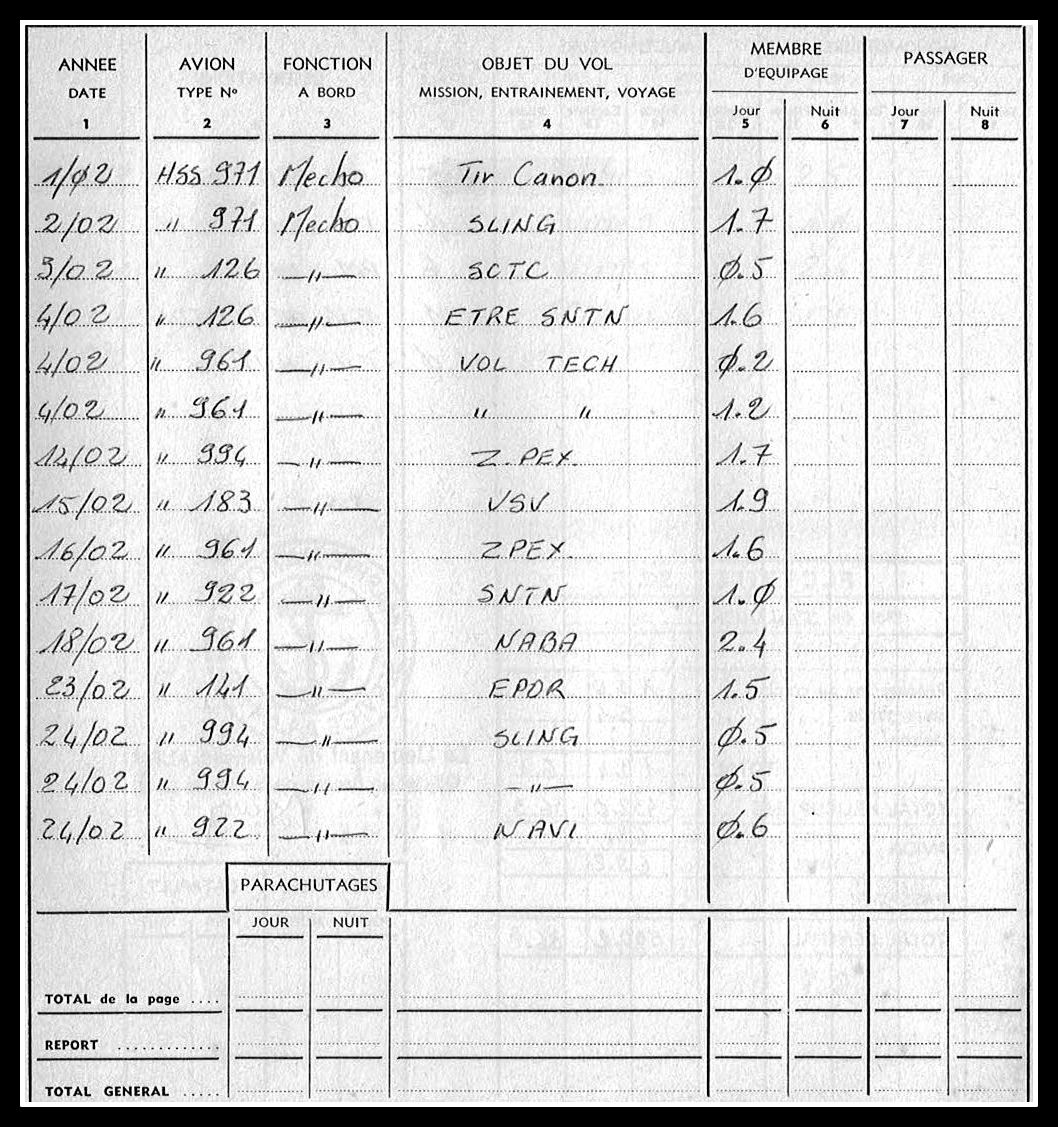 ANNEE AVION FONCTION OBJET DU VOL MEMBRE D'EQUIPAGE PASSAGER
DATE TYPE Nº A BORD MISSION, ENTRAINEMENT, VOYAGE Jour Nuit Jour Nuit
1 2 3 4 5 6 7 8
1/02 HSS 971 Mecbo Tir Canon 1.0
2/02 " 971 Mecbo SLING 1.7
3/02 " 126 —"— SCTC 0.5
4/02 " 126 —"— ETRE SNTN 1.6
4/02 " 961 —"— VOL TECH 0.2
4/02 " 961 —"— " " 1.2
14/02 " 994 —"— Z.PEX. 1.7
15/02 " 183 —"— VSV 1.9
16/02 " 961 —"— ZPEX. 1.6
17/02 " 922 —"— SNTN 1.0
18/02 " 961 —"— NABA 2.4
23/02 " 141 —"— EPOR 1.5
24/02 " 994 —"— SLING 0.5
24/02 " 994 —"— —"— 0.5
24/02 " 922 —"— NAVI 0.6
PARACHUTAGES
JOUR NUIT
TOTAL de la page ....
REPORT ............
TOTAL GENERAL .....